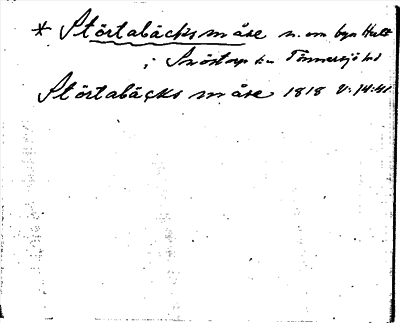 * Störtabäcks måse n. om byn Hult
i Snöstorp sn Tönnersjö hd
Störtabäcks måse 1818 V:14:41